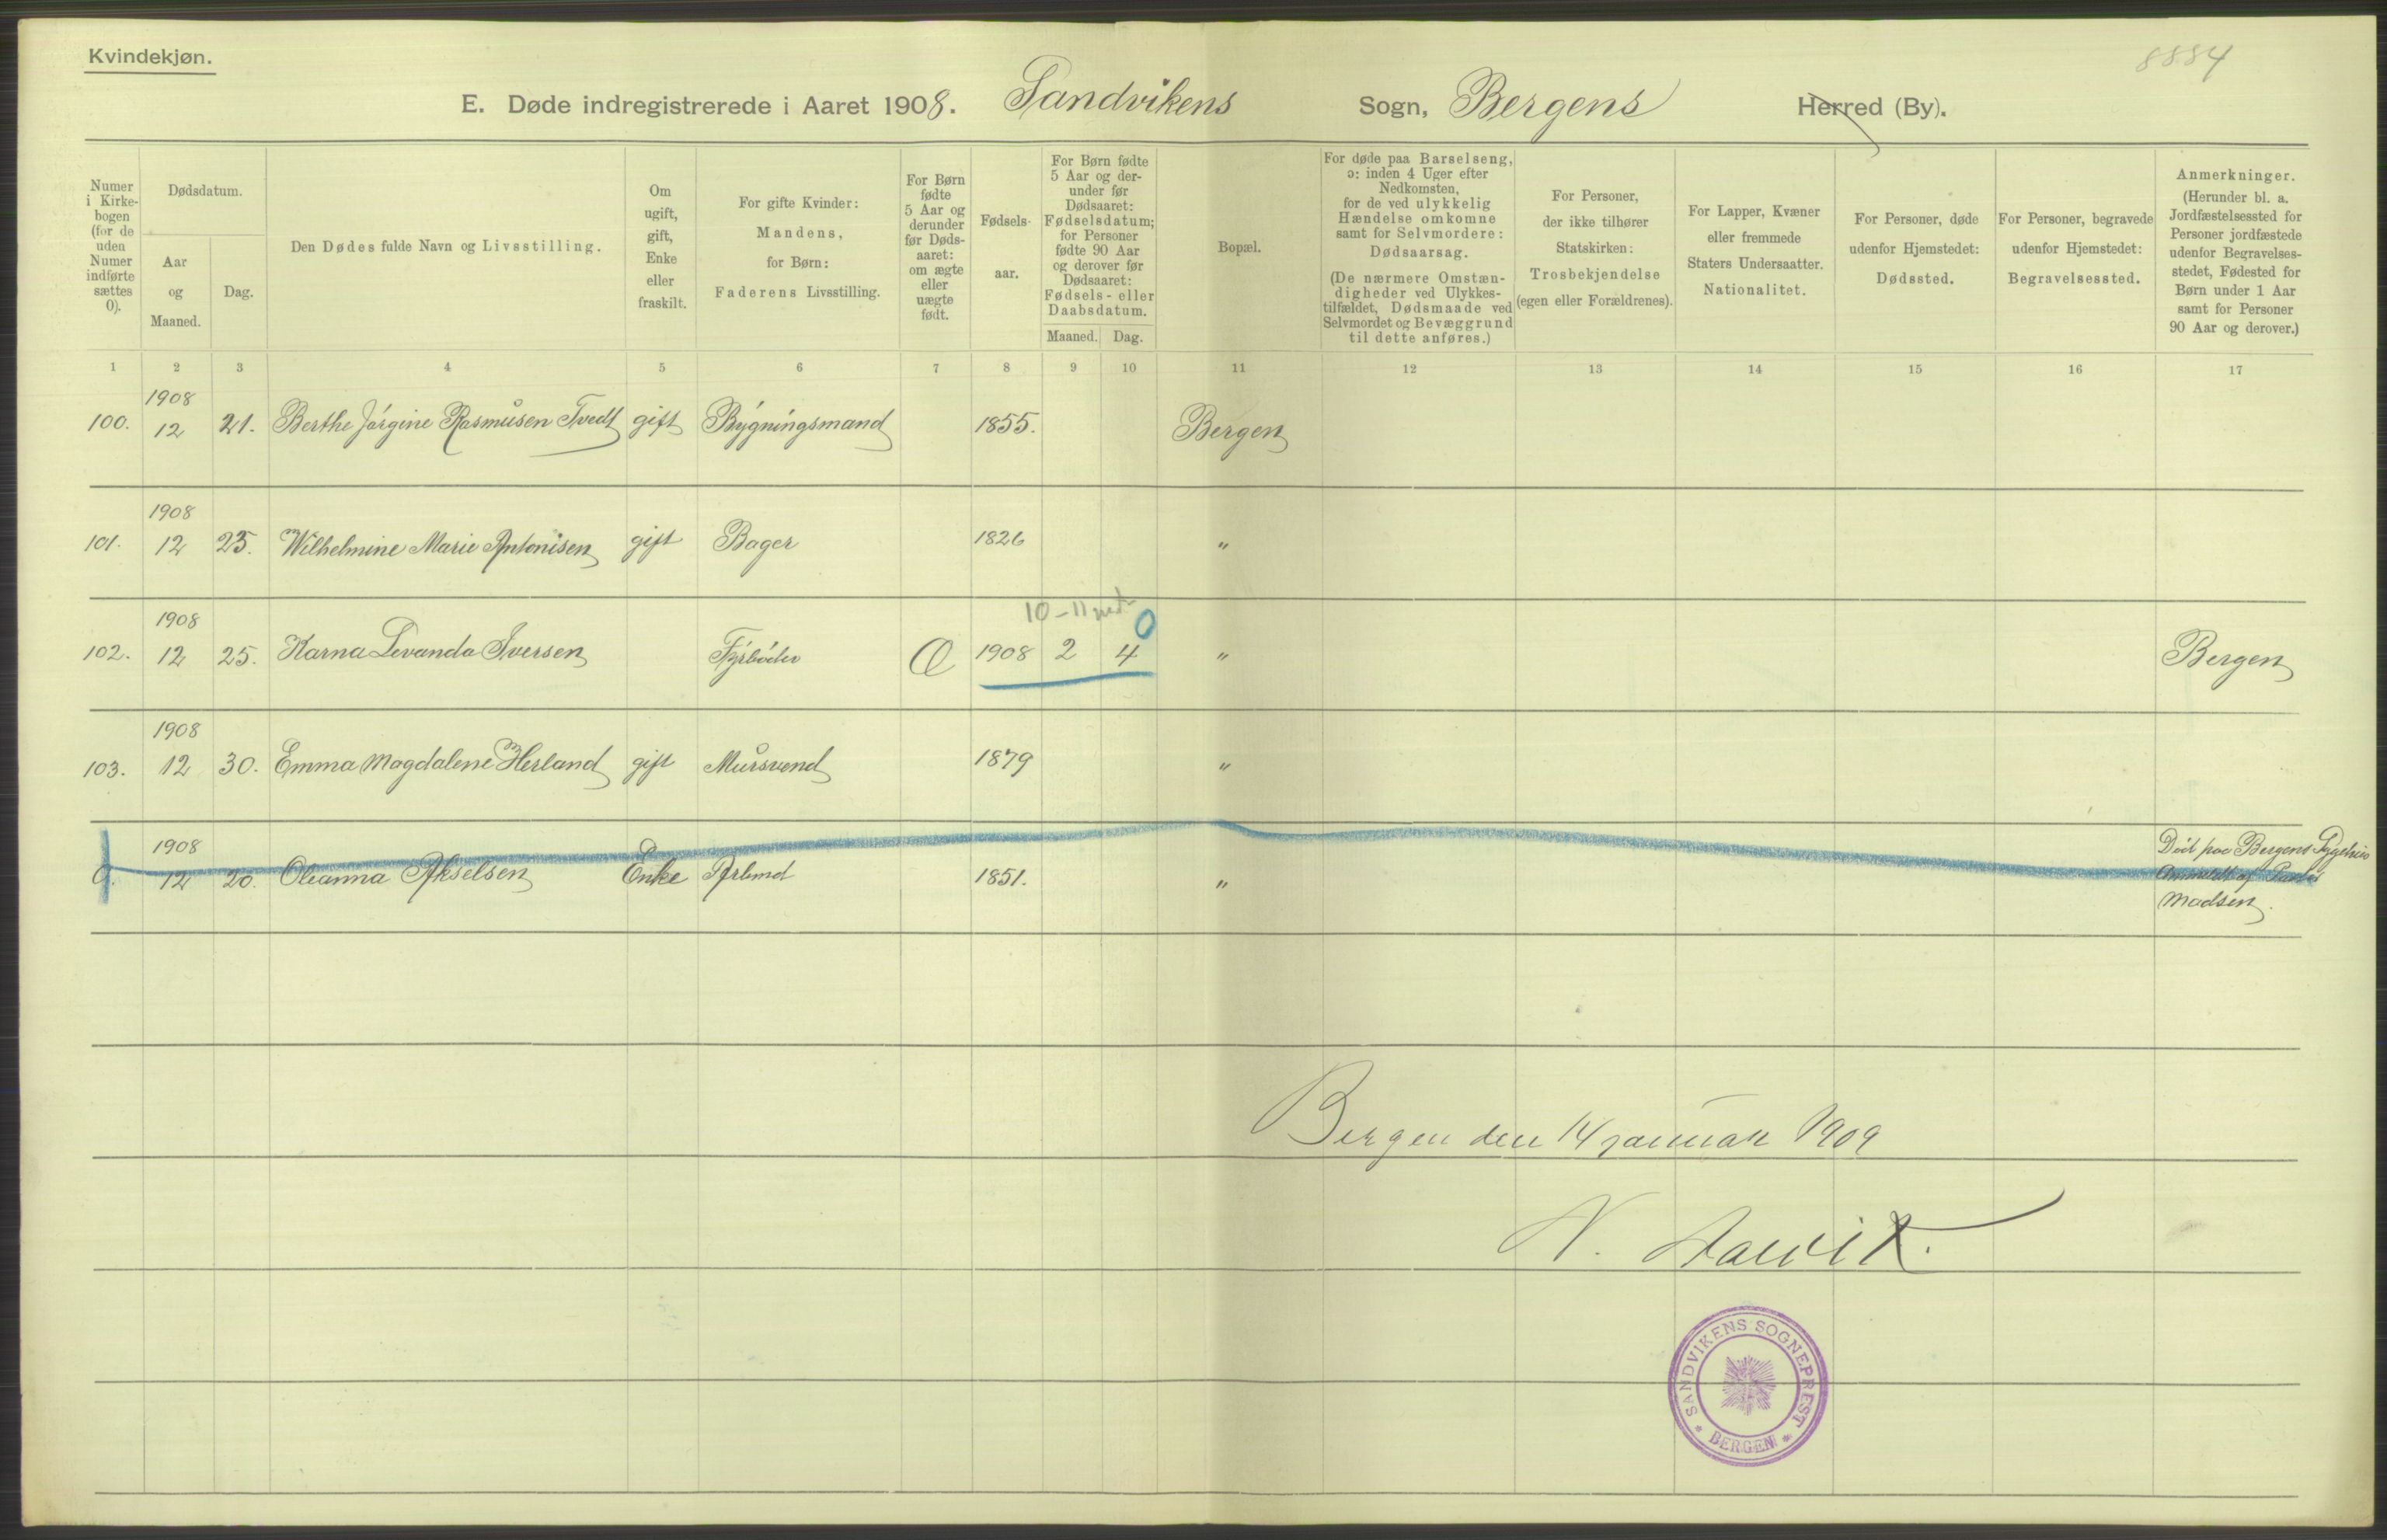 Kvindekjøn.
8884
E. Døde indregistrerede i Aaret 1908. Sandvikens Sogn, Bergens Herred (By).
Numer i Kirke-bogen (for de uden Numer indførte sættes 0).
Dødsdatum.
Aar og Maaned.
Dag.
Den Dødes fulde Navn og Livsstilling.
Om ugift, gift, Enke eller fraskilt.
For gifte Kvinder: Mandens, for Børn: Faderens Livsstilling.
For Børn fødte 5 Aar og derunder før Døds-aaret: om ægte eller uægte født.
Fødsels-aar.
For Børn fødte 5 Aar og der-under før Dødsaaret: Fødselsdatum; for Personer fødte 90 Aar og derover før Dødsaaret: Fødsels- eller Daabsdatum.
Maaned. Dag.
Bopæl.
For døde paa Barselseng, ɔ: inden 4 Uger efter Nedkomsten, for de ved ulykkelig Hændelse omkomne samt for Selvmordere: Dødsaarsag. (De nærmere Omstæn-digheder ved Ulykkes-tilfældet, Dødsmaade ved Selvmordet og Bevæggrund til dette anføres.)
For Personer, der ikke tilhører Statskirken: Trosbekjendelse (egen eller Forældrenes).
For Lapper, Kvæner eller fremmede Staters Undersaatter. Nationalitet.
For Personer, døde udenfor Hjemstedet: Dødssted.
For Personer, begravede udenfor Hjemstedet: Begravelsessted.
Anmerkninger. (Herunder bl. a. Jordfæstelsessted for Personer jordfæstede udenfor Begravelses-stedet, Fødested for Børn under 1 Aar samt for Personer 90 Aar og derover.)
1 2 3 4 5 6 7 8 9 10 11 12 13 14 15 16 17
1908
100. 12 21. Berthe Jørgine Rasmusen Tvedt gift Bygningsmand 1855. Bergen
1908
101. 12 23. Wilhelmine Marie Antonisen gift Bager 1826 "
10-11
1908 0
102. 12 25. Karna Levanda Iversen Fyrbøder 1908 2 4 " Bergen
1908
103. 12 30. Emma Magdalene Herland gift Mursvend 1879 "
1908 Død paa Bergens Sygehus
0. 12 20. Oleanna Akselsen Enke Arbmd 1851. " Anmeldt af
Madsen.
Bergen den 14 januar 1909
N.
SANDVIKENS SOGNEPREST
* BERGEN *